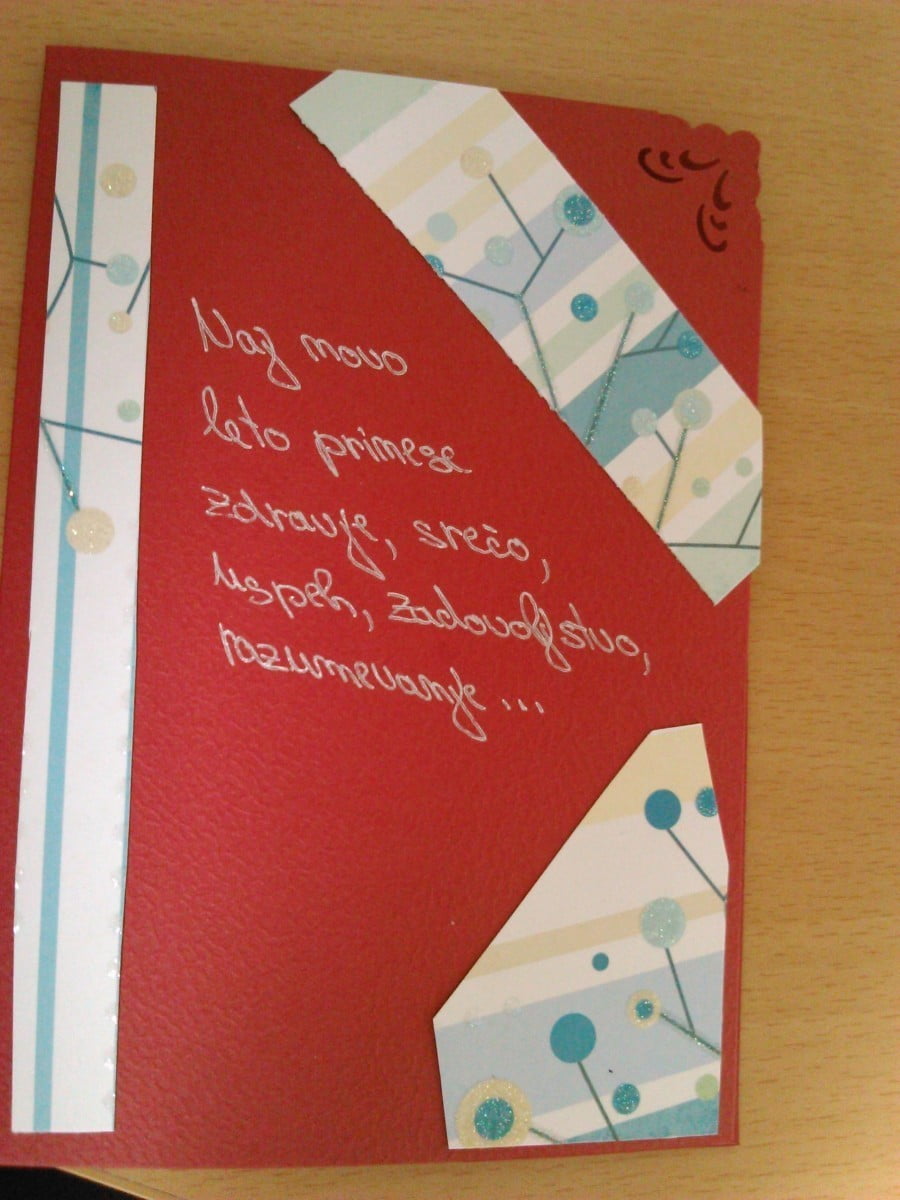 Naj novo
leto prinese
zdravje, srečo,
uspeh, zadovoljstvo,
razumevanje ...